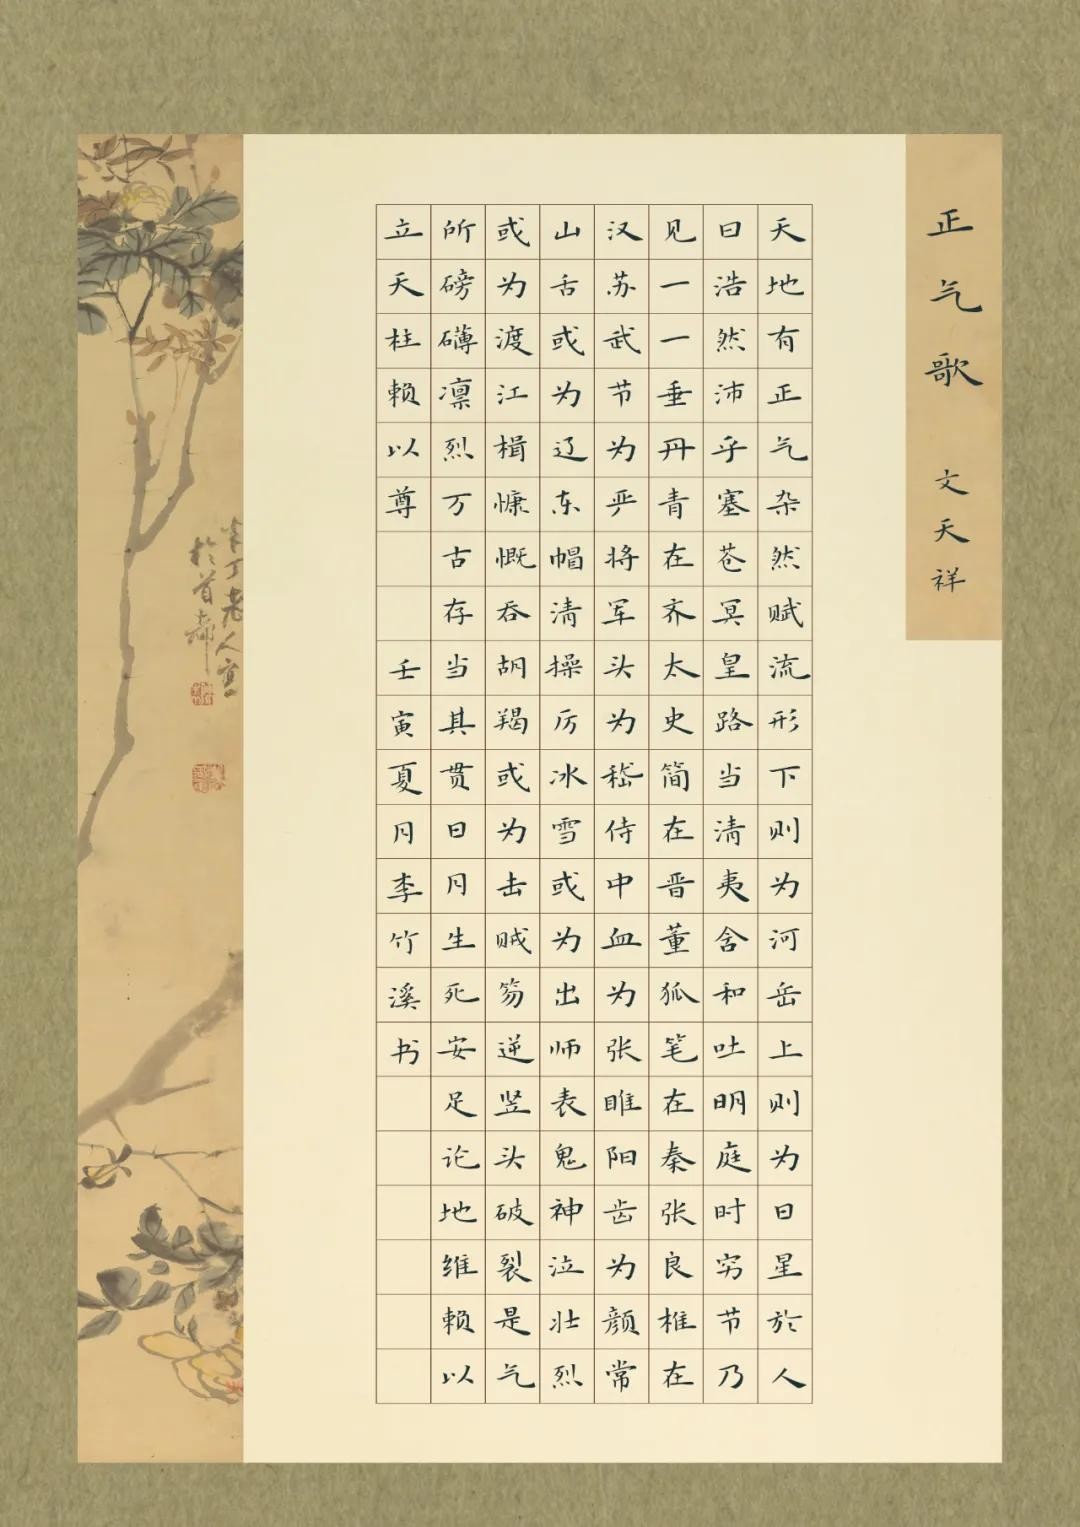 正气歌 文天祥
天地有正气杂然赋流形下则为河岳上则为日星於人
曰浩然沛乎塞苍冥皇路当清夷含和吐明庭时穷节乃
见一一垂丹青在齐太史简在晋董狐笔在秦张良椎在
汉苏武节为严将军头为嵇侍中血为张睢阳齿为颜常
山舌或为辽东帽清操厉冰雪或为出师表鬼神泣壮烈
或为渡江楫慷慨吞胡羯或为击贼笏逆竖头破裂是气
所磅礴凛烈万古存当其贯日月生死安足论地维赖以
立天柱赖以尊 壬寅夏月李竹溪书
老人写
於首都